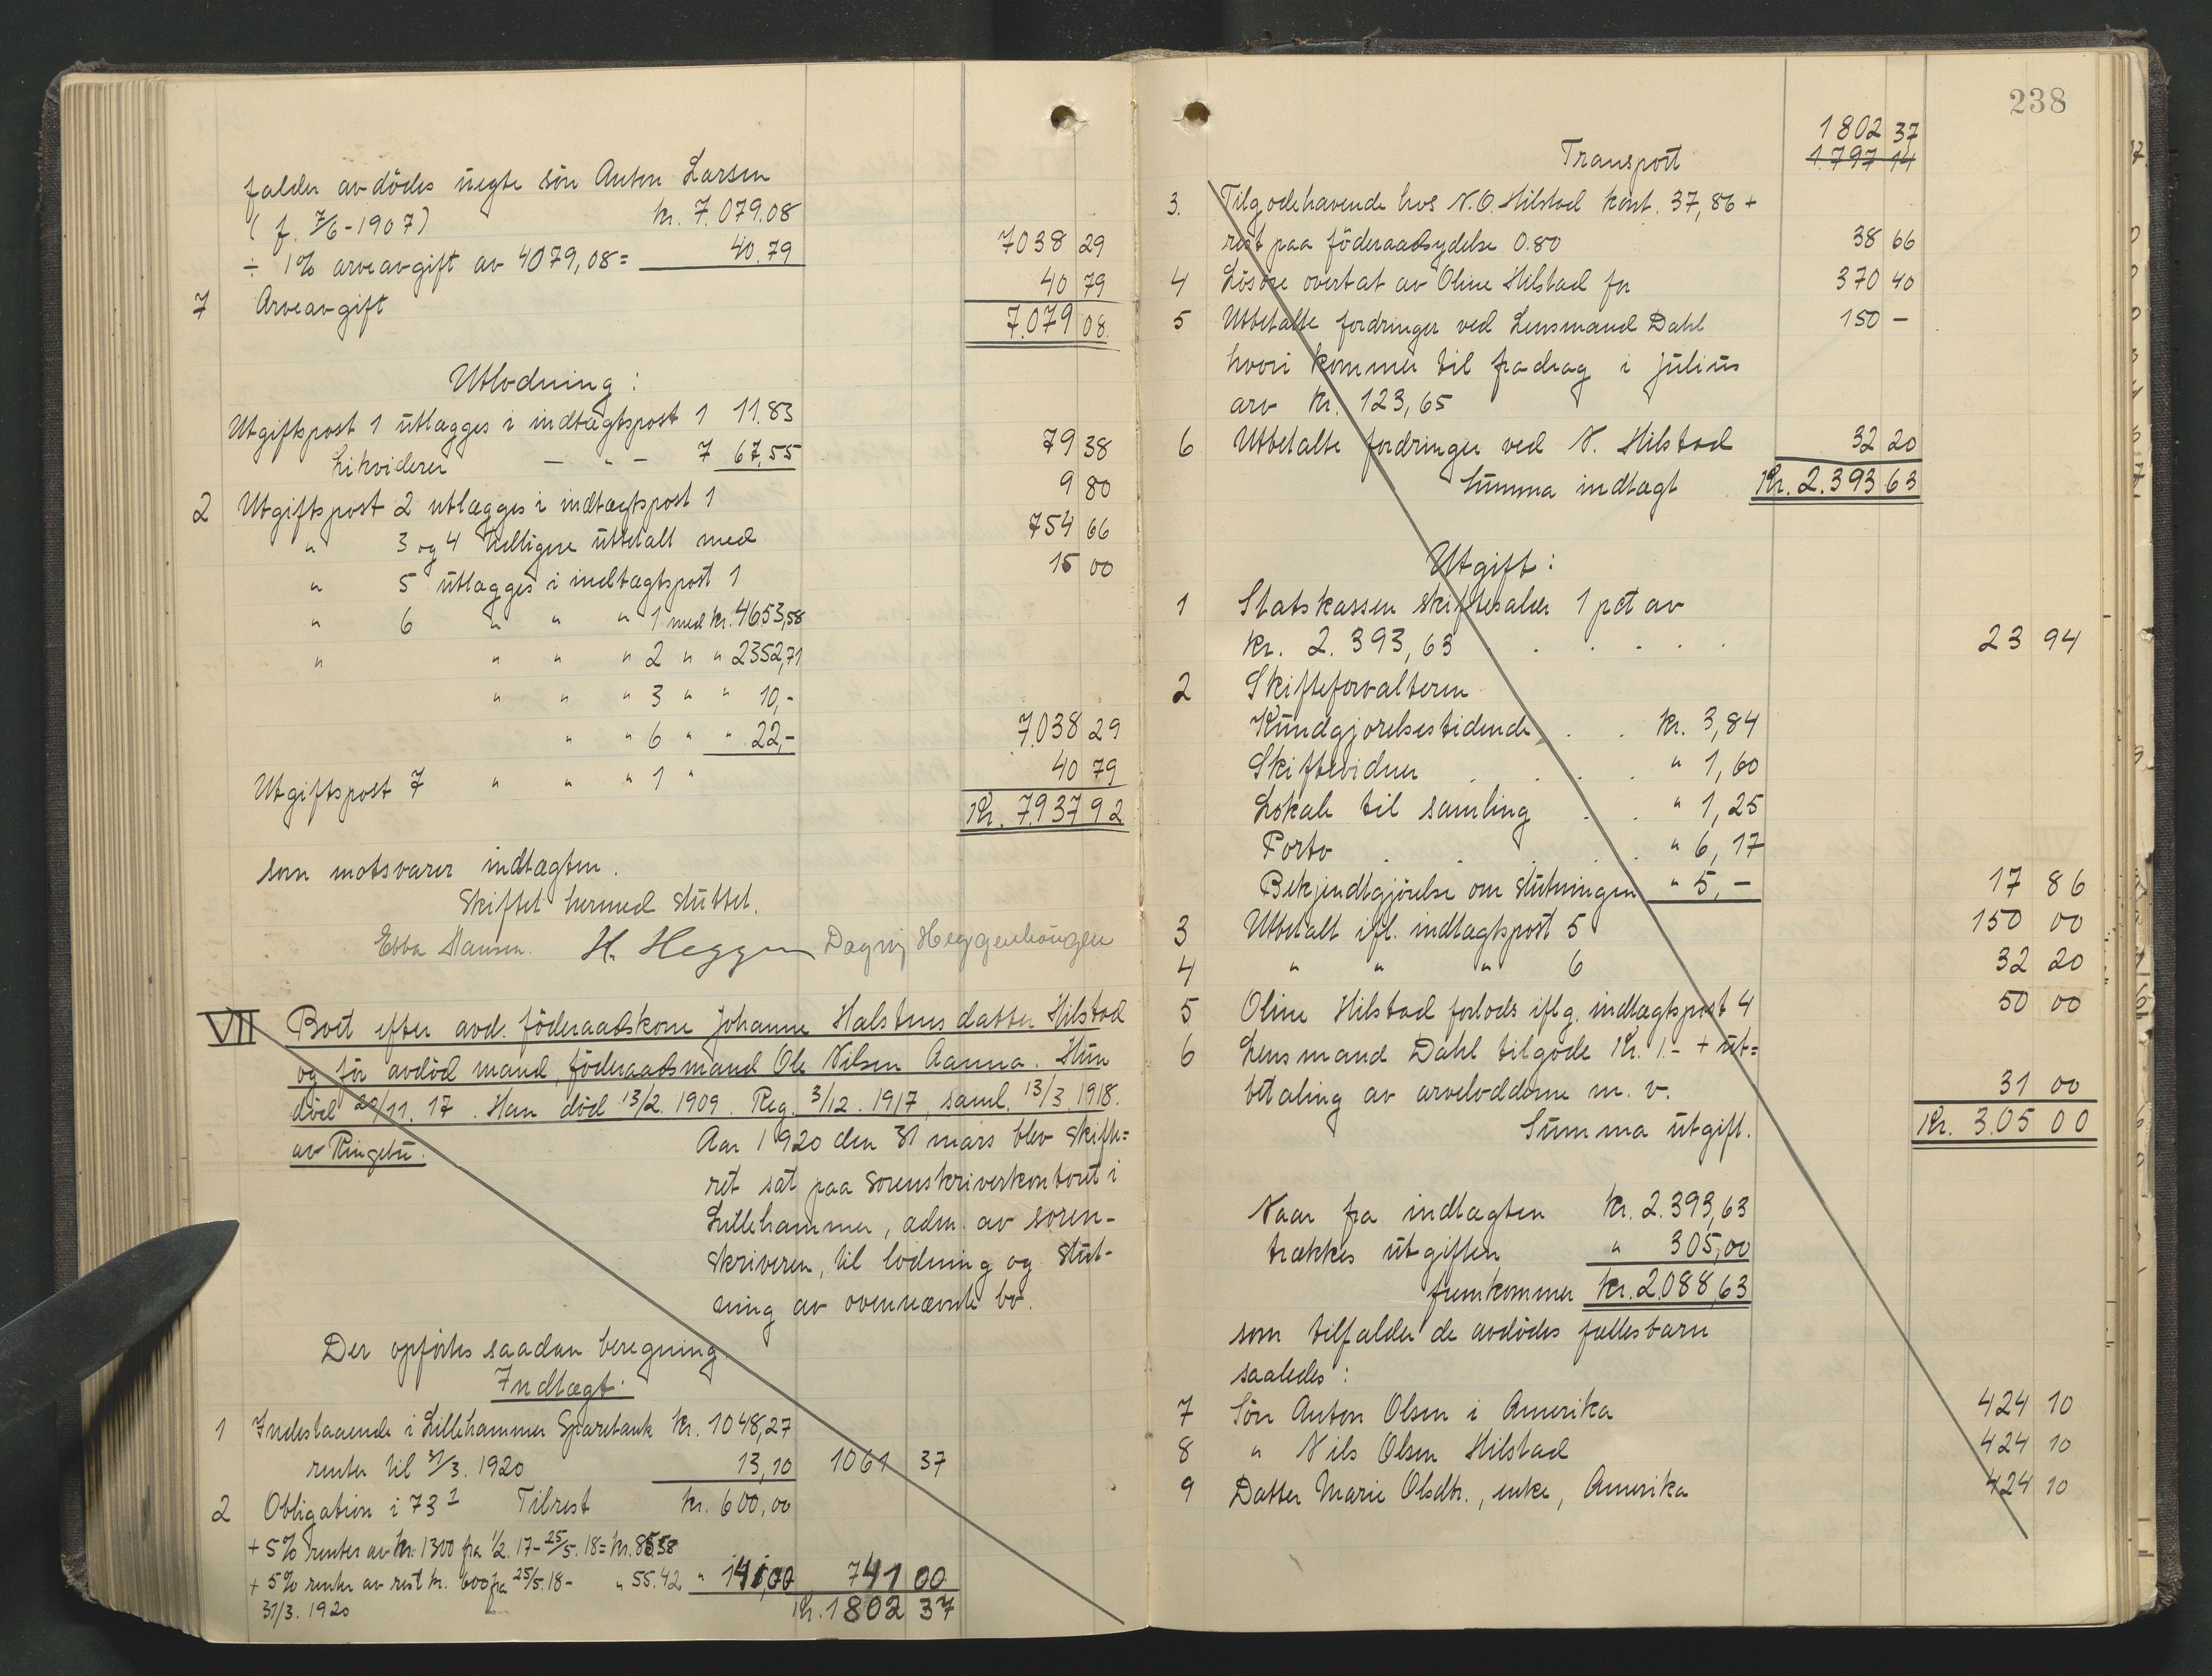 falder avdødes uegte søn Anton Larsen
(f. 7/6-1907) kr. 7.079.08
÷ 1% arveavgift av 4079,08 = 40.79 7038 29
7 Arveavgift 40 79
7.079 08.
Utlodning:
Utgiftspost 1 utlægges i indtægtspost 1 11.83
Likviderer — " — 7 67,55 79 38
2 Utgiftspost 2 utlægges i indtægtspost 1 9 80
" 3 og 4 tidligere utbetalt med 754 66
" 5 utlægges i indtægtspost 1 15 00
" 6 " " " 1 med kr. 4653,58
" " " " 2 " " 2352,71
" " " 3 " " 10,-
" " 6 " " 22,- 7.038 29
Utgiftspost 7 " " " 1 " 40 79
Kr. 7.937 92
som motsvarer indtægten.
Skiftet hermed sluttet.
Ebba Hansen. H. Heggen Dagny Heggenhougen
VII Boet efter avd. föderaadskone Johanne Halstensdatter Hilstad
og før avdöd mand, föderaadsmand Ole Nilsen Aanna. Hun
död 20/11. 17. Han död 13/2. 1909. Reg. 3/12. 1917, saml. 13/3. 1918.
av Ringebu.
Aar 1920 den 31 mars blev skifte=
ret sat paa sorenskriverkontoret i
Lillehammer, adm. av soren-
skriveren, til lodning og slut-
ning av ovennævnte bo.
Der opförtes saadan beregning.
Indtægt:
1 Indestaaende i Lillehammer Sparebank kr. 1048,27
renter til 31/3. 1920 13,10 1061 37
2 Obligation i 73 1 Tilrest kr. 600,00
+ 5% renter av kr. 1300 fra 1/2. 17 - 25/5. 18 = kr. 85.58
+ 5% renter av rest kr. 600 fra 25/5. 18 - " 55.42 " 141,00 741 00
31/3. 1920 Kr. 1802 37
238
1802 37
Transport 1.797 14
3. Tilgodehavende hos N.O. Hilstad kont. 37,86 +
rest paa föderaadsydelse 0.80 38 66
4 Lösöre overtat av Oline Hilstad for 370 40
5 Utbetalte fordringer ved Lensmand Dahl 150 —
hvori kommer til fradrag i Julius
arv kr. 123,65
6 Utbetalte fordringer ved N. Hilstad 32 20
Summa indtægt Kr. 2.393 63
Utgift:
1 Statskassen skiftesalær 1 pct av
kr. 2.393,63 . . . . . 23 94
2 Skifteforvalteren
Kundgjørelsestidende . . kr. 3,84
Skiftevidner . . . . " 1,60
Lokale til samling . . " 1,25
Porto . . . . " 6,17
Bekjendtgjörelse om slutningen " 5,— 17 86
3 Utbetalt ifl. indtægtspost 5 150 00
4 " " " 6 32 20
5 Oline Hilstad forlods iflg. indtægtspost 4 50 00
6 Lensmand Dahl tilgode Kr. 1.- + ut=
betaling av arveloddene m. v. 31 00
Summa utgift. Kr. 305 00
Naar fra indtægten kr. 2.393,63
trækkes utgiften " 305,00
fremkommer kr. 2.088,63
som tilfalder de avdödes fællesbarn
saaledes:
7 Sön Anton Olsen i Amerika 424 10
8 " Nils Olsen Hilstad 424 10
9 Datter Marie Olsdtr., enke, Amerika 424 10